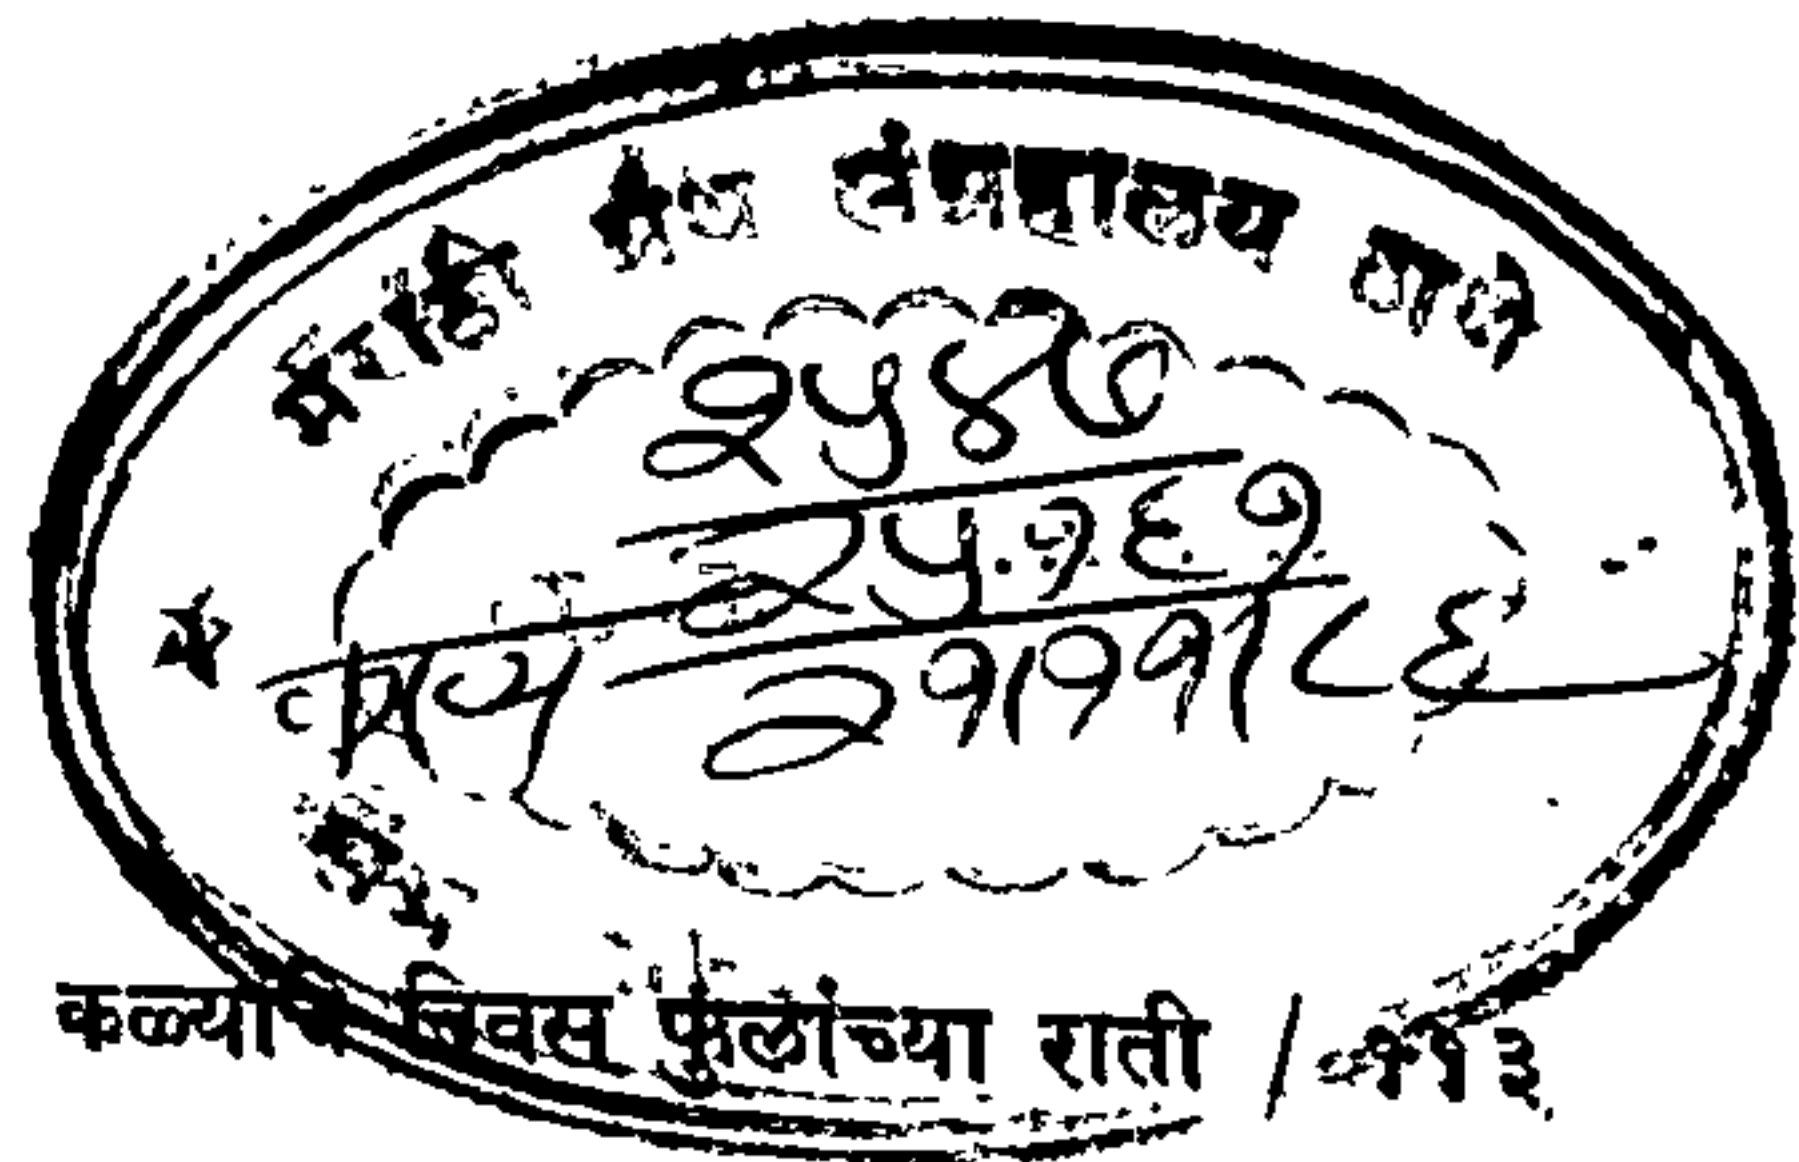 मराठी ग्रंथ संग्रहालय ठाणे
२५४७
२५.१६१
काव्य २१११११८६
कळ्यांचे दिवस फुलांच्या राती / ११३